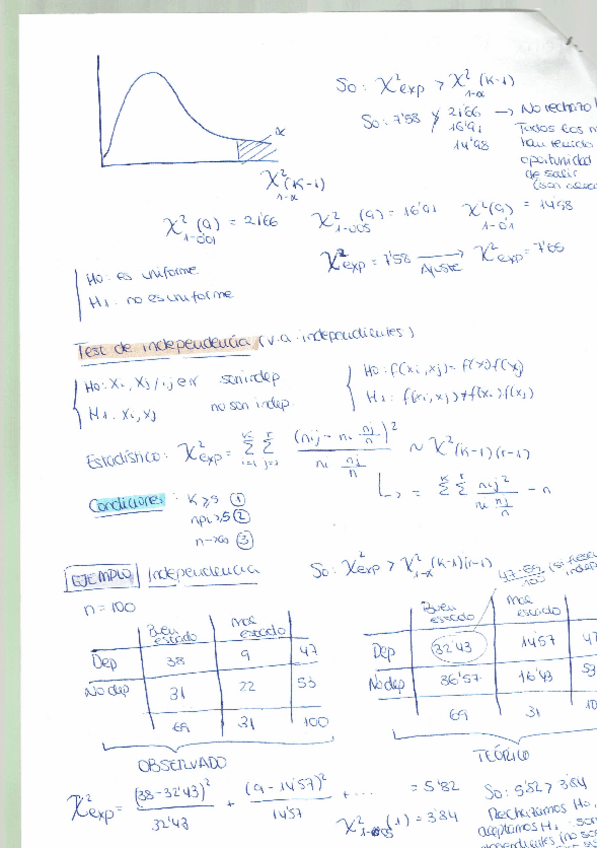 So: χ²exp > χ²(K-1)
1-α
So: 7'58 ≯ 21'66 → No rechazo
16'91
14'98
Todos los
han tenido
oportunidad
de salir
α
χ²(K-1)
1-α
χ²(9) = 21'66   χ²(9) = 16'91   χ²(9) = 14'98
1-0'01   1-0'05   1-0'1
χ²exp = 7'58 → χ²exp =
Ajuste
H0: es uniforme
H1: no es uniforme
Test de independencia (v.a. independientes)
H0: Xi, Xj / i,j ∈ son indep
H1: Xi, Xj no son indep.
H0: f(xi, xj) = f(xi) f(xj)
H1: f(xi, xj) ≠ f(xi) f(xj)
Estadístico: χ²exp = Σ Σ (nij - ni nj/n)² / ni nj/n ~ χ²(K-1)(r-1)
↳ = Σ Σ nij² / ni nj/n - n
Condiciones: K ≥ 5 ①
npi ≥ 5 ②
n→∞ ③
EJEMPLO Independencia
So: χ²exp > χ²(K-1)(r-1)
1-α
47·69/100
n = 100
Buen estado   Mal estado
Dep 38 9 47
No dep 31 22 53
69 31 100
OBSERVADO
Buen estado   Mal estado
Dep 32'43 14'57 47
No dep 36'57 16'43 53
69 31
TEÓRICO
χ²exp = (38-32'43)²/32'43 + (9-14'57)²/14'57 + ... = 5'82
χ²(1) = 3'84
1-0'05
So: 5'82 > 3'84
Rechazamos H0,
aceptamos H1: son